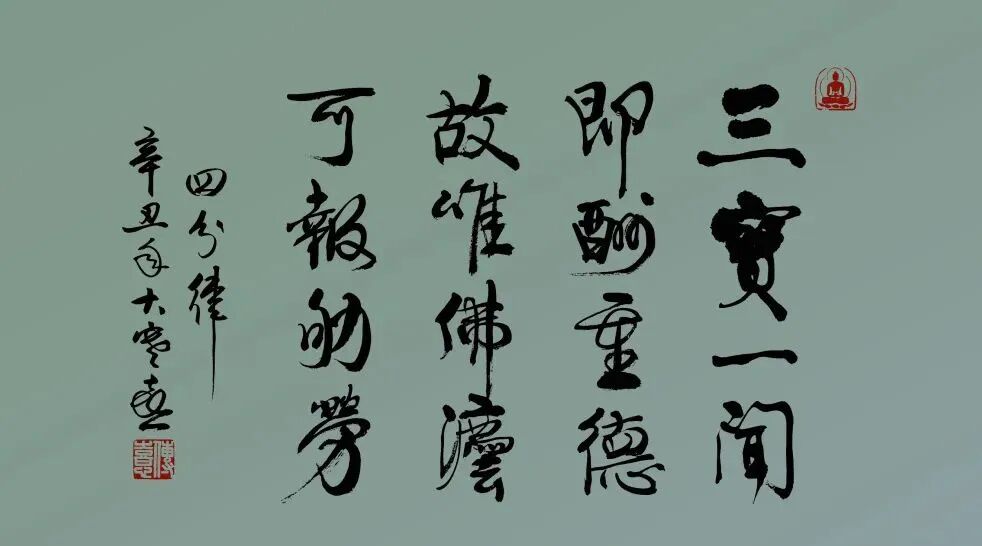 三寶一聞
即酬重德
故唯佛灋
可報劬勞
四分律
辛丑年大寒憙
傳憙